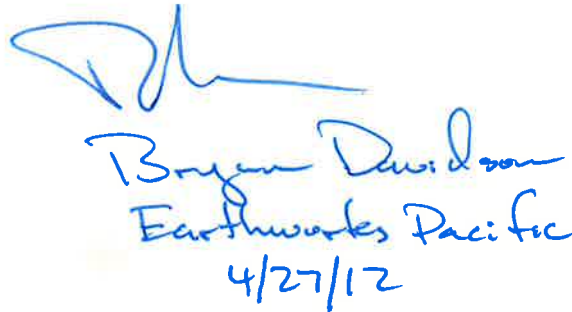 Bryan Davidson
Earthworks Pacific
4/27/12